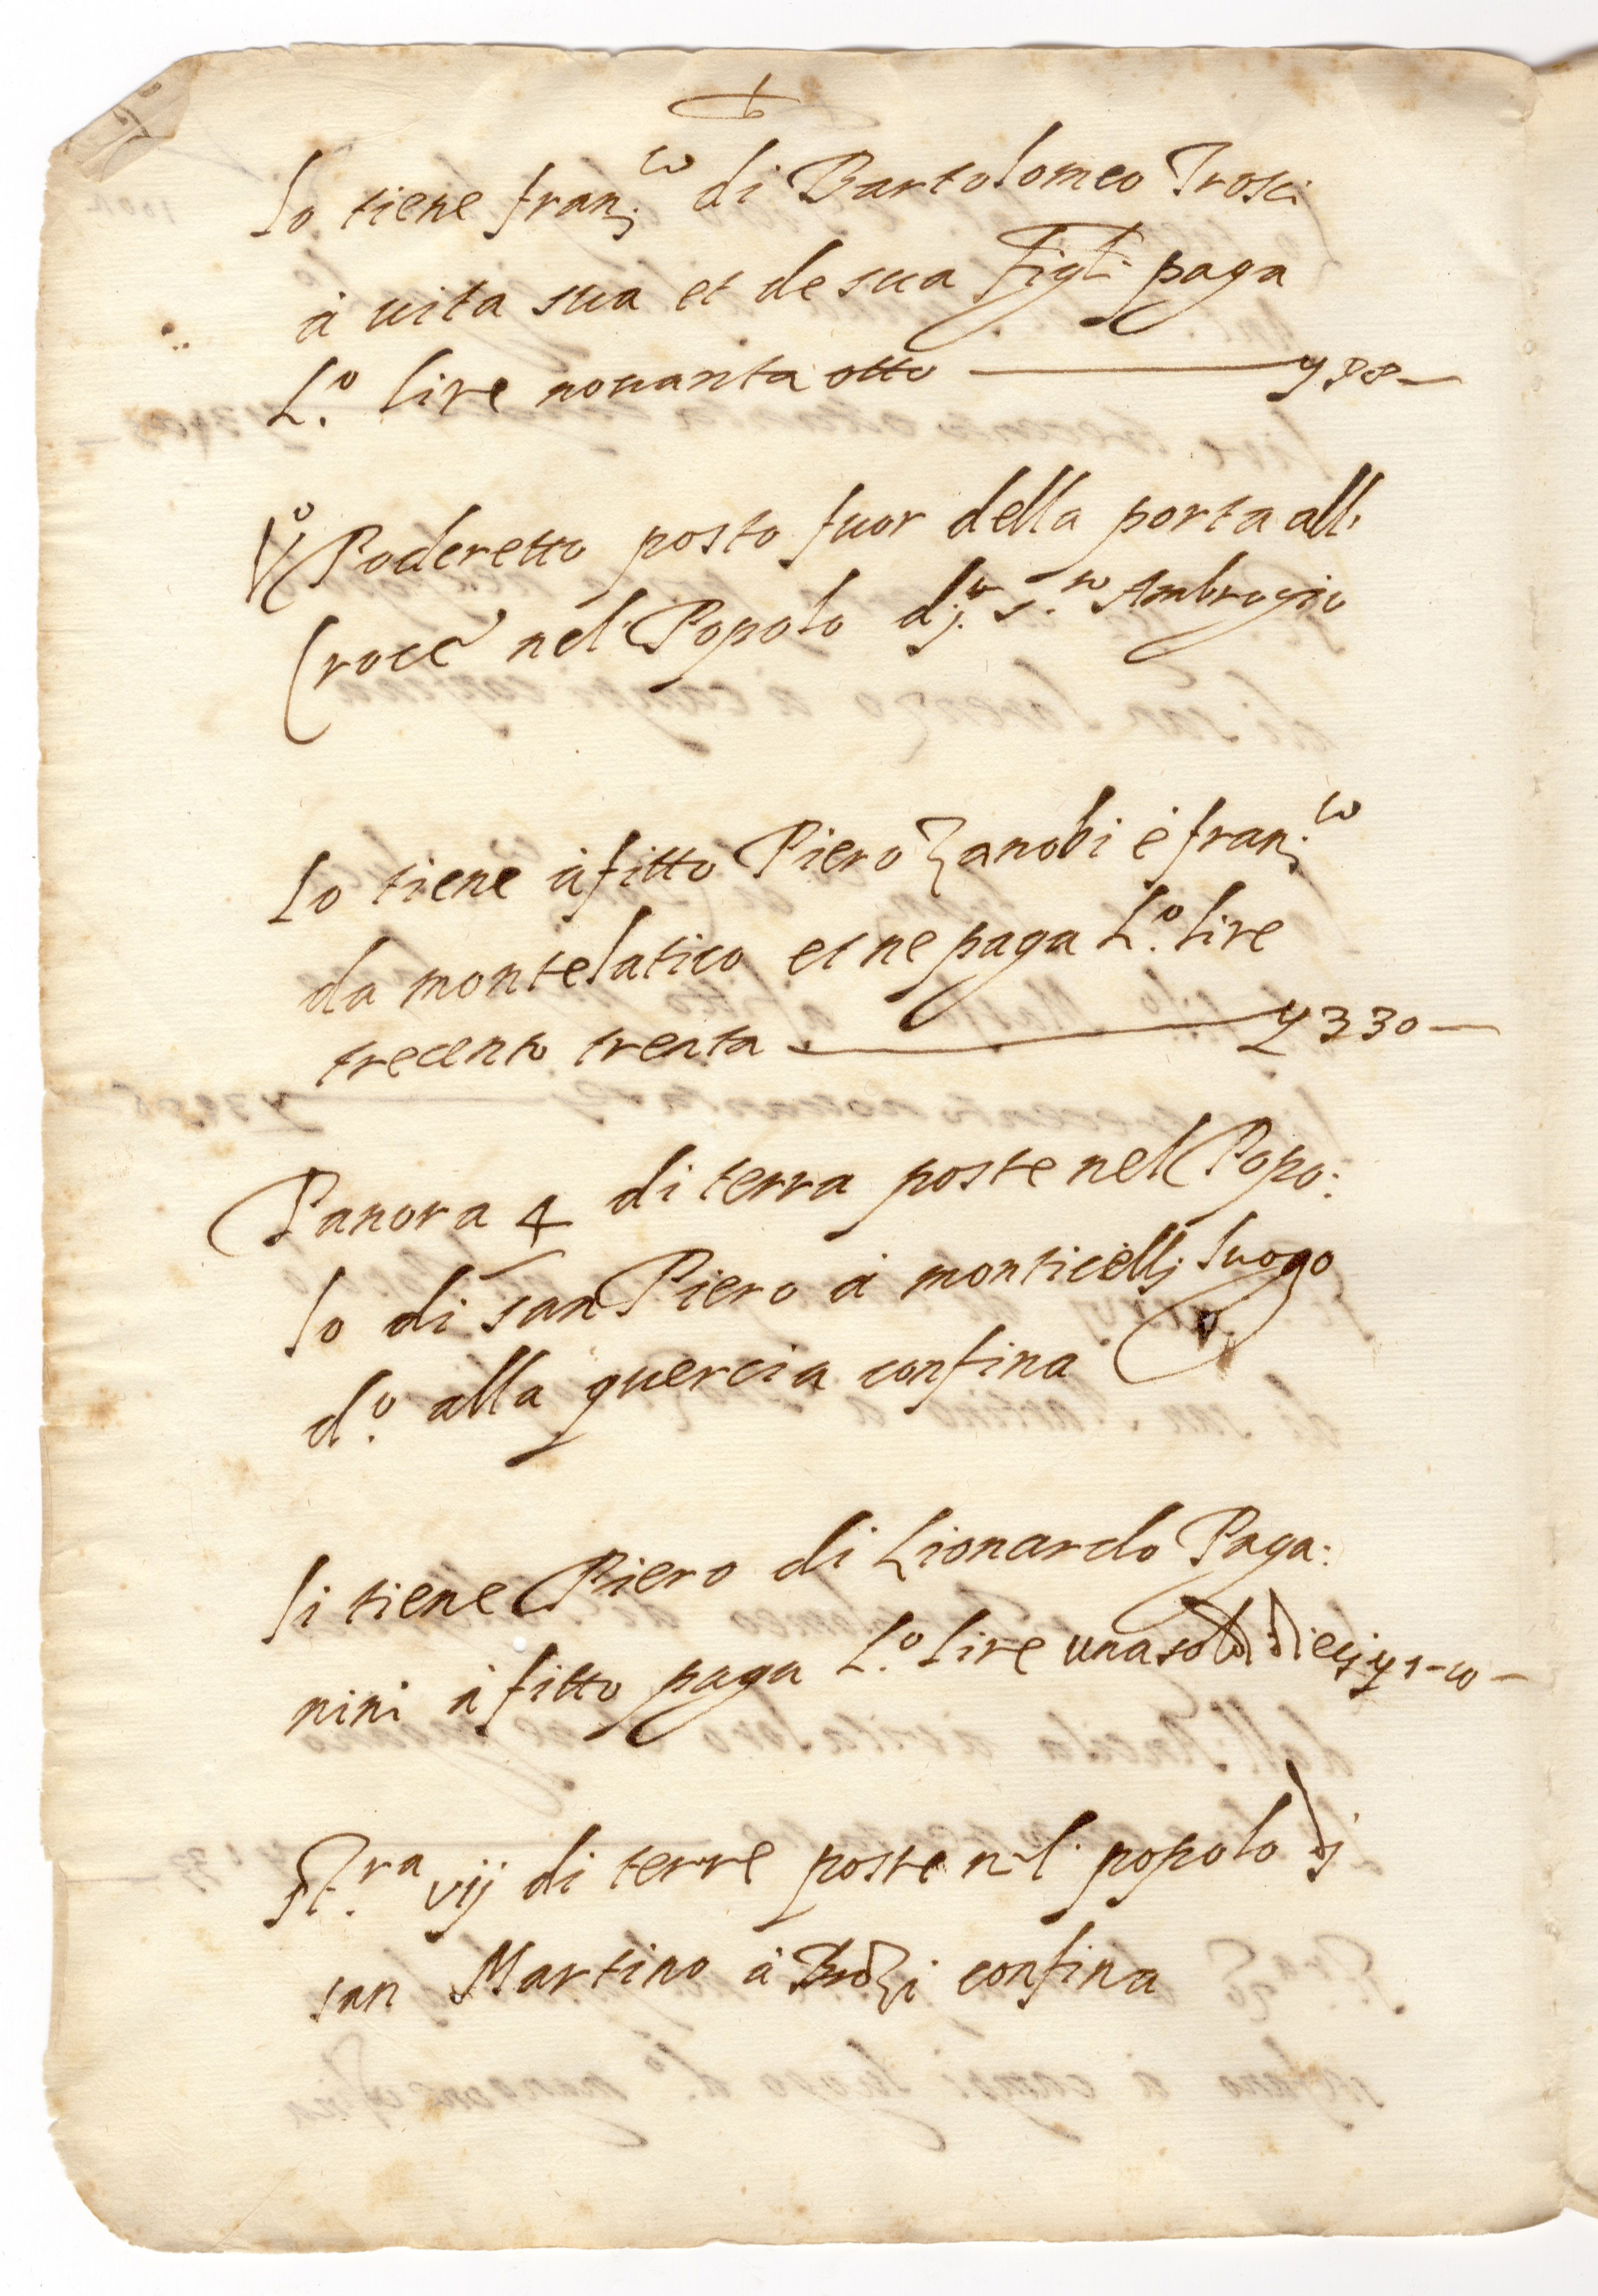 lo tiene Franc.co di Bartolomeo Trosci
à uita sua et de sua Figl: paga
L.o lire nouanta otto ——— 98 —
V.o Poderetto posto fuor della porta alla
Croce nel Popolo di S.to Ambrogio
lo tiene à fitto Piero Zanobi è Franc.co
da montelatico et ne paga L.o lire
trecento trenta ——— 330 —
Panora 4 di terra poste nel Popo:
lo di san Piero à monticelli luogo
d.o alla quercia confina
li tiene Piero di Lionardo Paga:
nini à fitto paga L.o lire una soldi dieci 1-10-
St.ra vij di terre poste nel popolo di
san Martino à Brozi confina